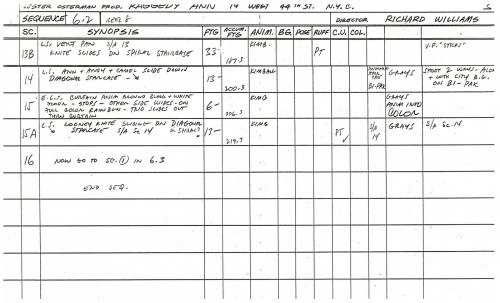 LESTER OSTERMAN PROD. RAGGEDY ANN 14 WEST 44TH ST. N.Y.C.
SEQUENCE 6.2 REEL 8 DIRECTOR RICHARD WILLIAMS
SC. SYNOPSIS FTG ACCUM. FTG ANIM. BG. POSE RUFF C.U. COL.
13B L.S. VERT PAN S/A 13 33- KIMB. PT V.P. "STILLS"
KNITE SLIDES ON SPIRAL STAIRCASE 187.3
14 L.S. ANN + ANDY + CAMEL SLIDE DOWN 13- KIMBALL GRAYS SHOOT 2 WAYS - ALON
DIAGONAL STAIRCASE 200.3 BI-PAK + WITH CITY B.G. ON BI-PAK
15 E.C.S. CURTAIN ANIM AROUND BLACK + WHITE 6- KIMB GRAYS
STOPS - OTHER SIDE WIPES ON ANIM INTO
FULL COLOR RAINBOW - THO SLIDES OUT 206.3 COLOR
THRU CURTAIN
15A C.S. LOONEY KNITE SLIDING ON DIAGONAL 13- KIMB PT S/A 14 GRAYS S/A SC. 14
STAIRCASE S/A SC 14 219.3
16 NOW GO TO SC. 1 IN 6.3
END SEQ.